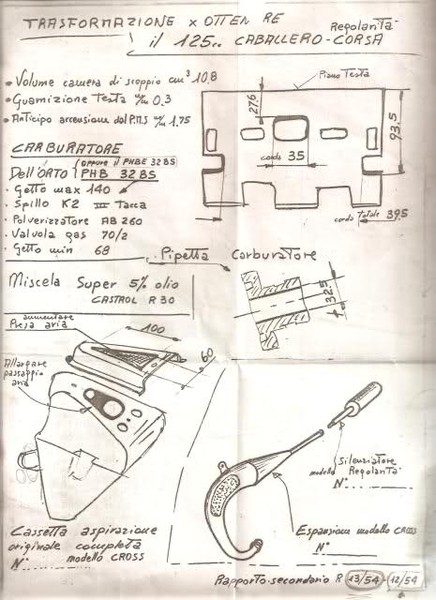 TRASFORMAZIONE x OTTENERE
il 125cc CABALLERO-CORSA
Regolarità
• Volume camera di scoppio cm³ 10,8
• Guarnizione Testa m/m 0,3
• Anticipo accensione dal P.M.S m/m 1,75
CARBURATORE
Dell'ORTO (OPPURE il PHBE 32 BS
PHB 32 BS
• Getto max 140
• Spillo K2 III Tacca
• Polverizzatore AB 260
• Valvola gas 70/2
• Getto min 68
Piano Testa
27,6
93,5
corda 35
corda totale 39,5
Pipetta Carburatore
32,5
Miscela Super 5% olio
CASTROL R 30
aumentare
Presa aria
100
60
Allargare
passaggio
aria
Silenziatore
modello Regolarità
N°
Espansione modello CROSS
N°
Cassetta aspirazione
originale completa
N° modello CROSS
Rapporto secondario R 13/54 - 12/54